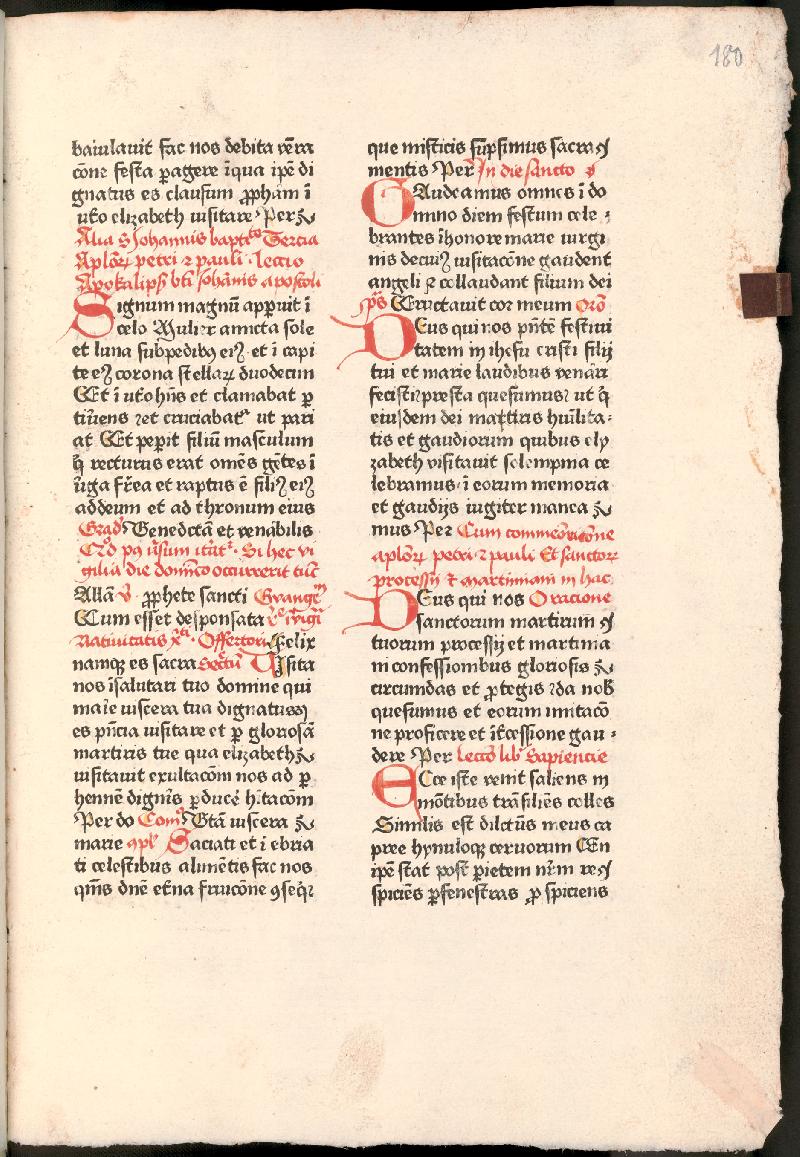 180
baiulauit fac nos debita vēra
cōne festa pagere īqua ipē di
gnatus es clausum ꝓphām ī
uťo elizabeth uisitare Per
Alia S Johannis bapte Tercia
Aplōꝝ petri ⁊ pauli · lectio
Apokalips bti Johānis apostoli
Signum magnū appuit ī
celo Mulier amicta sole
et luna subpedibꝰ eiꝰ · et ī capi
te eiꝰ corona stellaꝝ duodecim
Et ī uťo hn̄s et clamabat p
tūriens et cruciabatᷣ ut pari
at Et pepit filiū masculum
qͥ recturus erat omēs gētes ī
uͥga fr̄ea et raptus ē filiꝰ eiꝰ
addeum et ad thronum eius
Grad Benedctā et venābilis
Si hec vi
gilia die domīco occurrerit tūc
Allā v̓ · ꝓphete sancti Evangeᷣ
Cum esset desponsata
Natiuitatis xͥ · Offertoriū Felix
namqꝫ es sacra Secͭū Uisita
nos īsalutari tuo domine qui
maͥe uiscera tua dignatus
es pn̄cia uisitare et p gloriosā
martiris tue qua elizabeth
uisitauit exultacōm nos ad p
hennē dignͥs pducē hͥtacōm
Per do Comᷣ Btā uiscera
marie aplᷣ Saciati et ī ebria
ti celestibus alimētis fac nos
qms dnē etna fruicōne ꝯseqͥ
que misticis supsimus sacra
mentis Per In die sancto
Gaudeamus omnes ī do
mino diem festum cele :
brantes īhonore marie uirgi
nis decuiꝰ uisitacōne gaudent
angeli ⁊ collaudant filium dei
ps Eructauit cor meum Orō
Deus qui nos pn̄tē festiui
tatem in ihesu cristi filij
tui et marie laudibus venāri
fecisti presta quesumus ut qͥ
eiusdem dei matris hūilita :
tis et gaudiorum quibus ely
zabeth visitauit solempnia ce
lebramus · ī eorum memoria
et gaudijs iugiter manea
mus Per Cum commeōracione
aplōꝝ petri ⁊ pauli Et sanctoꝝ
processi ⁊ martiniani in hac
Deus qui nos Oracione
sanctorum martirum
tuorum processij et martinia
ni confessionibus gloriosis
circumdas et ꝓtegis da nob̄
quesumus et eorum imitacō
ne proficere et ītcessione gau :
dere Per lectō libᷣ Sapiencie
Ecce iste venit saliens in
mōtibus trāsiliēs colles
Similis est dilctus meus ca
pree hynuloqꝫ ceruorum En
ipē stat post pietem nr̄m re
spiciēs pfenestras ꝓ spiciens